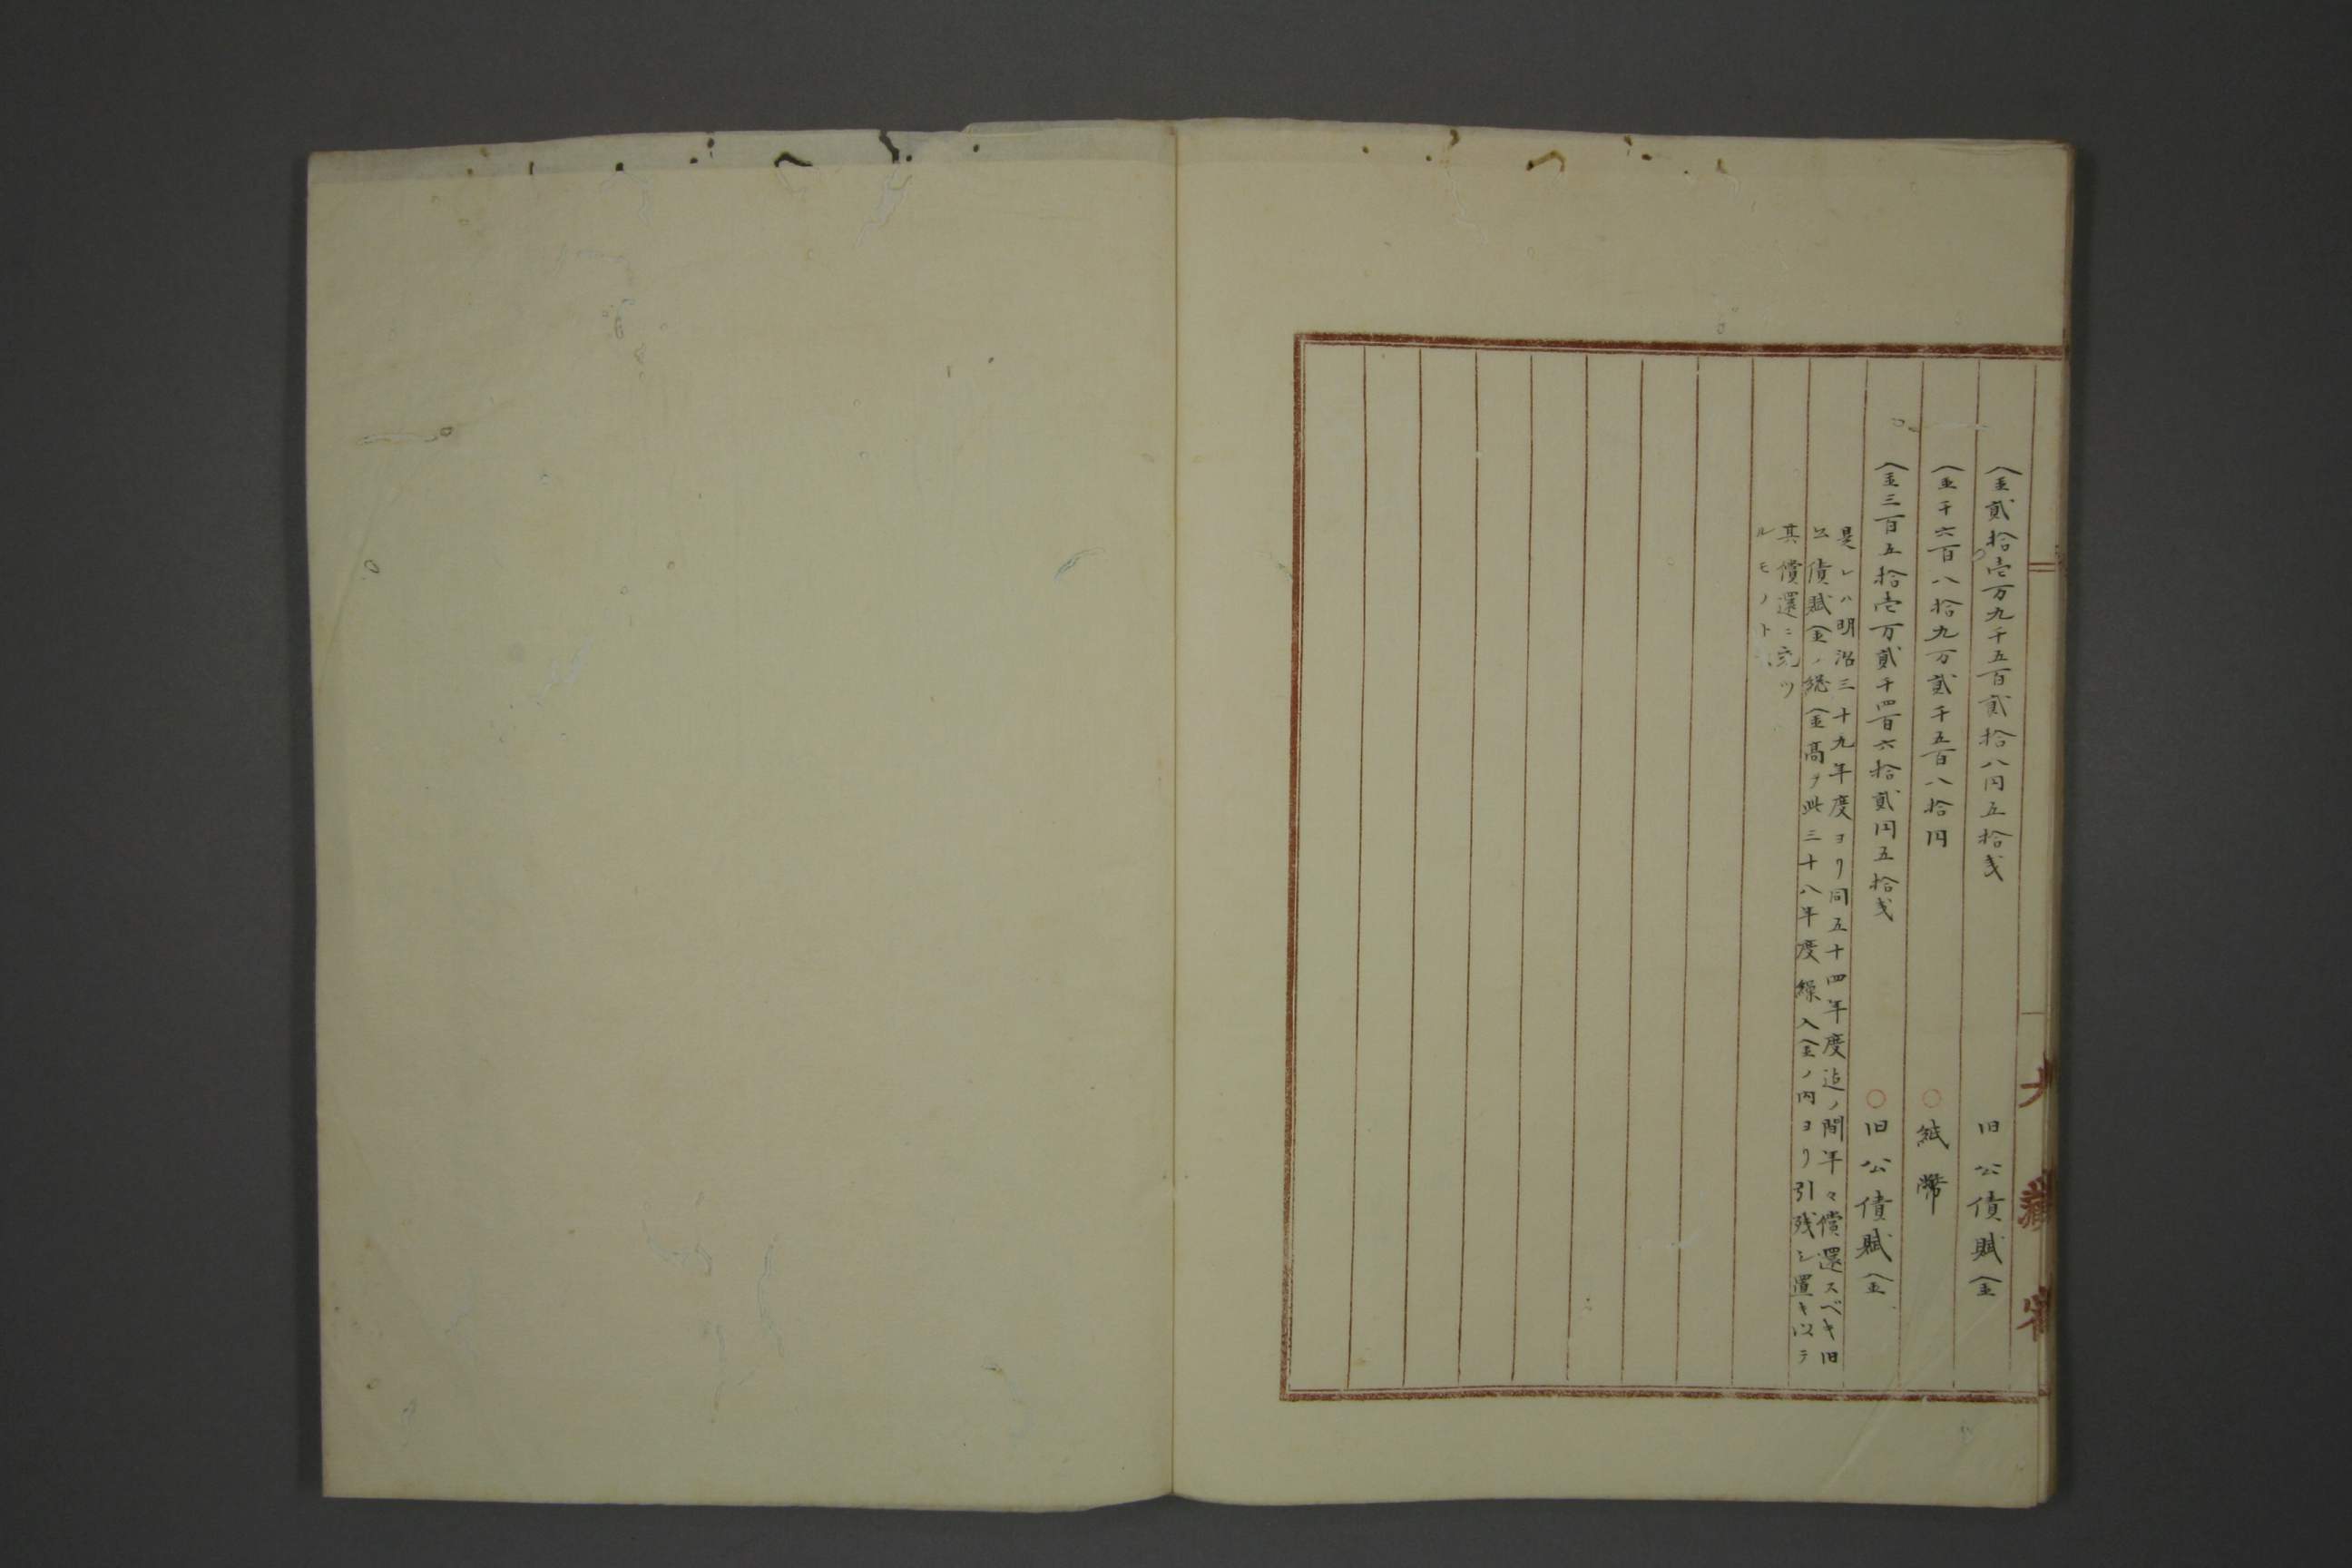 金貳拾壱万九千五百貳拾八円五拾戋 旧公債賦金
金千六百八拾九万貳千五百八拾円 ○紙幣
金三百五拾壱万貳千四百六拾貳円五拾戋 ○旧公債賦金
是レハ明治三十九年度ヨリ同五十四年度迄ノ間年々償還スベキ旧
公債賦金ノ総金高ヲ此三十八年度繰入金ノ内ヨリ引残シ置キ以テ
其償還ニ充ツ
ルモノトス
大藏省